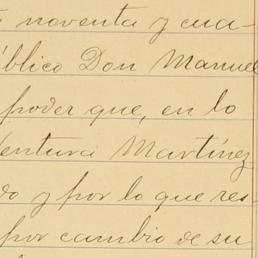 noventa y cua-
blico Don Manuel
poder que, en lo
entura Martínez
do y por lo que res-
por cambio de su